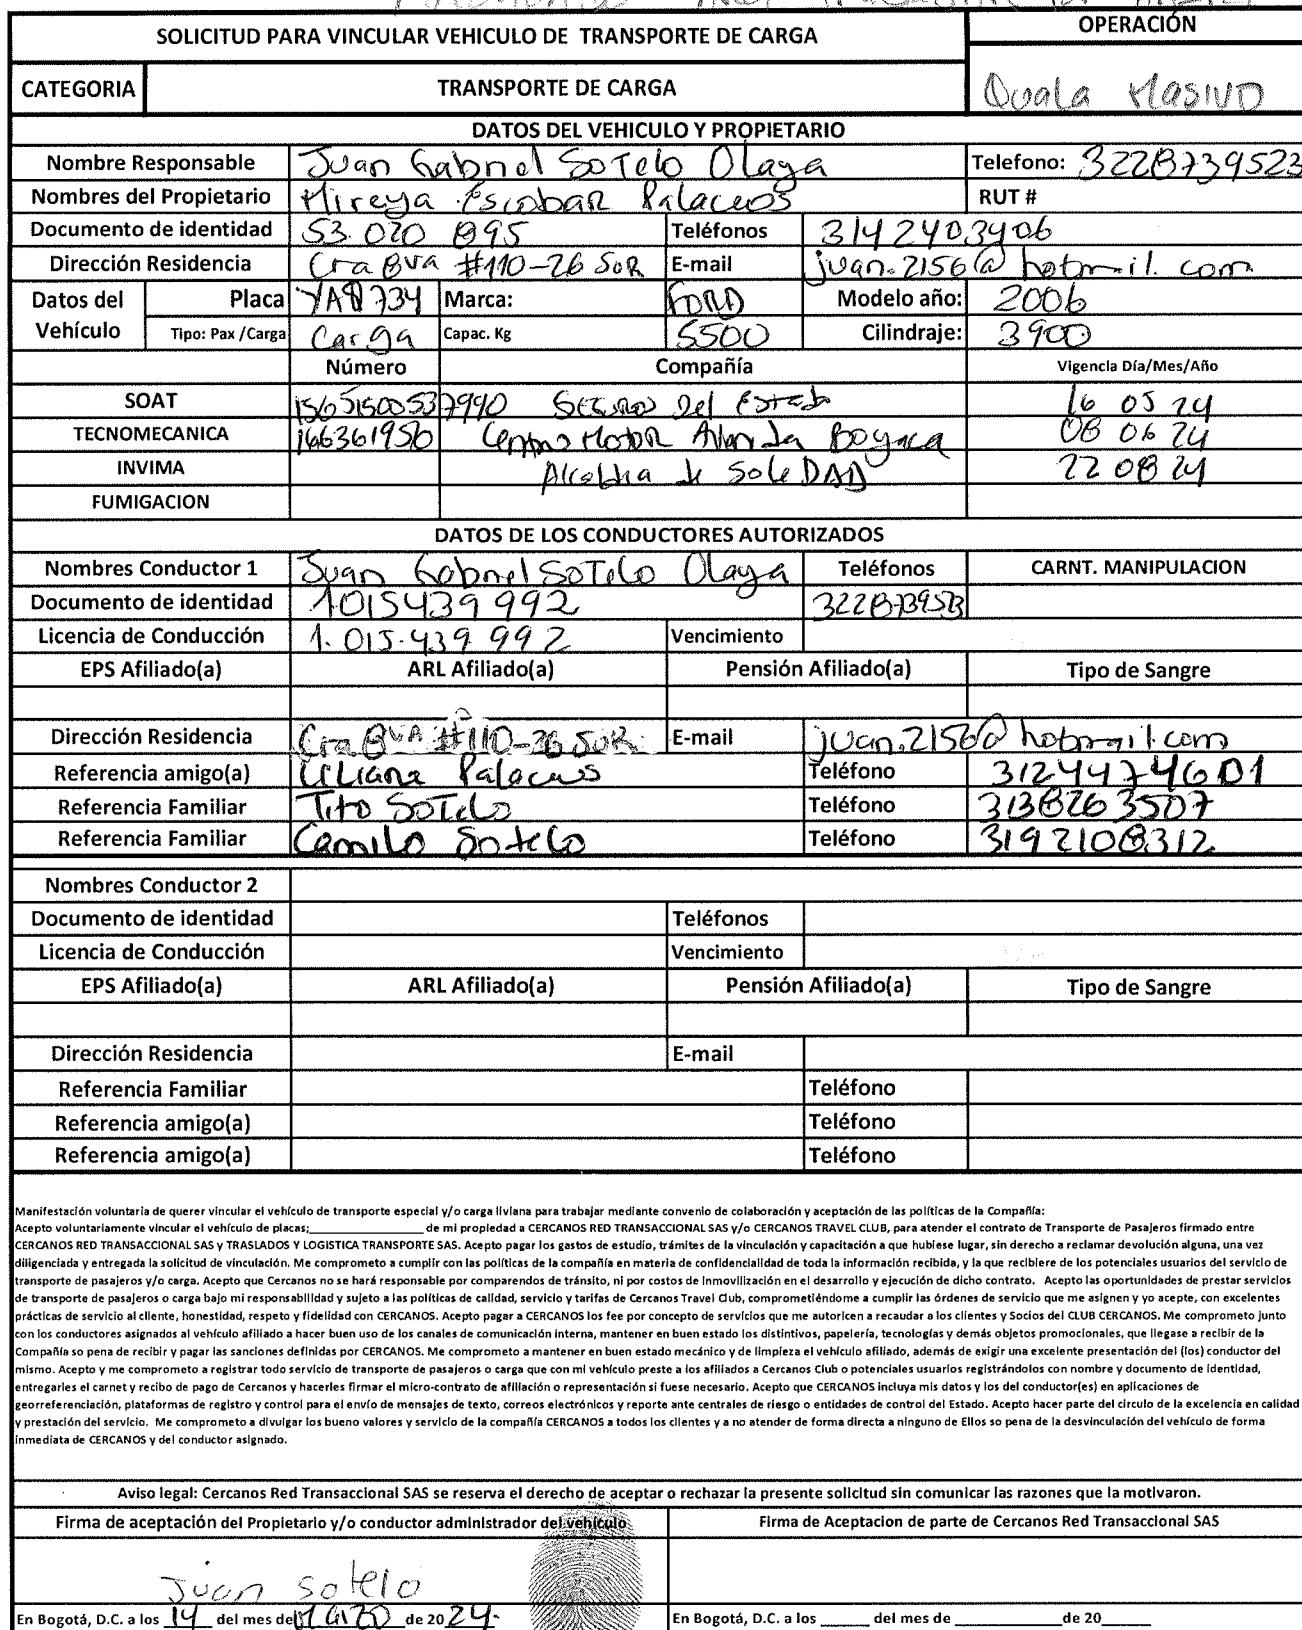 SOLICITUD PARA VINCULAR VEHICULO DE TRANSPORTE DE CARGA
OPERACIÓN
CATEGORIA TRANSPORTE DE CARGA Quala Masivo
DATOS DEL VEHICULO Y PROPIETARIO
Nombre Responsable Juan Gabriel Sotelo Olaya Telefono: 3228739523
Nombres del Propietario Mireya Escobar Palacios RUT #
Documento de identidad 53.020 895 Teléfonos 3142403406
Dirección Residencia Cra 8va #110-26 SUR E-mail juan.2156@hotmail.com
Datos del Vehículo Placa Marca: FORD Modelo año: 2006
Tipo: Pax /Carga Carga Capac. Kg 5500 Cilindraje: 3900
Número Compañía Vigencia Día/Mes/Año
SOAT Seguros Del Estado 16 05 24
TECNOMECANICA 166361956 Centro Motor Avenida Boyaca 08 06 24
INVIMA Alcaldia de SoleDAD 22 08 24
FUMIGACION
DATOS DE LOS CONDUCTORES AUTORIZADOS
Nombres Conductor 1 Juan Gabriel Sotelo Olaya Teléfonos CARNT. MANIPULACION
Documento de identidad 1015439992 3228739523
Licencia de Conducción 1.015.439 992 Vencimiento
EPS Afiliado(a) ARL Afiliado(a) Pensión Afiliado(a) Tipo de Sangre
Dirección Residencia Cra 8VA #110-26 SUR E-mail juan.2156@hotmail.com
Referencia amigo(a) Liliana Palacios Teléfono 3124474601
Referencia Familiar Tito Sotelo Teléfono 3138263507
Referencia Familiar Camilo Sotelo Teléfono 3192108312
Nombres Conductor 2
Documento de identidad Teléfonos
Licencia de Conducción Vencimiento
EPS Afiliado(a) ARL Afiliado(a) Pensión Afiliado(a) Tipo de Sangre
Dirección Residencia E-mail
Referencia Familiar Teléfono
Referencia amigo(a) Teléfono
Referencia amigo(a) Teléfono
Manifestación voluntaria de querer vincular el vehículo de transporte especial y/o carga liviana para trabajar mediante convenio de colaboración y aceptación de las políticas de la Compañía:
Acepto voluntariamente vincular el vehículo de placas;____________________ de mi propiedad a CERCANOS RED TRANSACCIONAL SAS y/o CERCANOS TRAVEL CLUB, para atender el contrato de Transporte de Pasajeros firmado entre
CERCANOS RED TRANSACCIONAL SAS y TRASLADOS Y LOGISTICA TRANSPORTE SAS. Acepto pagar los gastos de estudio, trámites de la vinculación y capacitación a que hubiese lugar, sin derecho a reclamar devolución alguna, una vez
diligenciada y entregada la solicitud de vinculación. Me comprometo a cumplir con las políticas de la compañía en materia de confidencialidad de toda la información recibida, y la que recibiere de los potenciales usuarios del servicio de
transporte de pasajeros y/o carga. Acepto que Cercanos no se hará responsable por comparendos de tránsito, ni por costos de inmovilización en el desarrollo y ejecución de dicho contrato. Acepto las oportunidades de prestar servicios
de transporte de pasajeros o carga bajo mi responsabilidad y sujeto a las políticas de calidad, servicio y tarifas de Cercanos Travel Club, comprometiéndome a cumplir las órdenes de servicio que me asignen y yo acepte, con excelentes
prácticas de servicio al cliente, honestidad, respeto y fidelidad con CERCANOS. Acepto pagar a CERCANOS los fee por concepto de servicios que me autoricen a recaudar a los clientes y Socios del CLUB CERCANOS. Me comprometo junto
con los conductores asignados al vehículo afiliado a hacer buen uso de los canales de comunicación interna, mantener en buen estado los distintivos, papelería, tecnologías y demás objetos promocionales, que llegase a recibir de la
Compañía so pena de recibir y pagar las sanciones definidas por CERCANOS. Me comprometo a mantener en buen estado mecánico y de limpieza el vehículo afiliado, además de exigir una excelente presentación del (los) conductor del
mismo. Acepto y me comprometo a registrar todo servicio de transporte de pasajeros o carga que con mi vehículo preste a los afiliados a Cercanos Club o potenciales usuarios registrándolos con nombre y documento de identidad,
entregarles el carnet y recibo de pago de Cercanos y hacerles firmar el micro-contrato de afiliación o representación si fuese necesario. Acepto que CERCANOS incluya mis datos y los del conductor(es) en aplicaciones de
georreferenciación, plataformas de registro y control para el envío de mensajes de texto, correos electrónicos y reporte ante centrales de riesgo o entidades de control del Estado. Acepto hacer parte del circulo de la excelencia en calidad
y prestación del servicio. Me comprometo a divulgar los bueno valores y servicio de la compañía CERCANOS a todos los clientes y a no atender de forma directa a ninguno de Ellos so pena de la desvinculación del vehículo de forma
inmediata de CERCANOS y del conductor asignado.
Aviso legal: Cercanos Red Transaccional SAS se reserva el derecho de aceptar o rechazar la presente solicitud sin comunicar las razones que la motivaron.
Firma de aceptación del Propietario y/o conductor administrador del vehículo Firma de Aceptacion de parte de Cercanos Red Transaccional SAS
Juan Sotelo
En Bogotá, D.C. a los 14 del mes de Marzo de 2024. En Bogotá, D.C. a los ______ del mes de ____________ de 20______